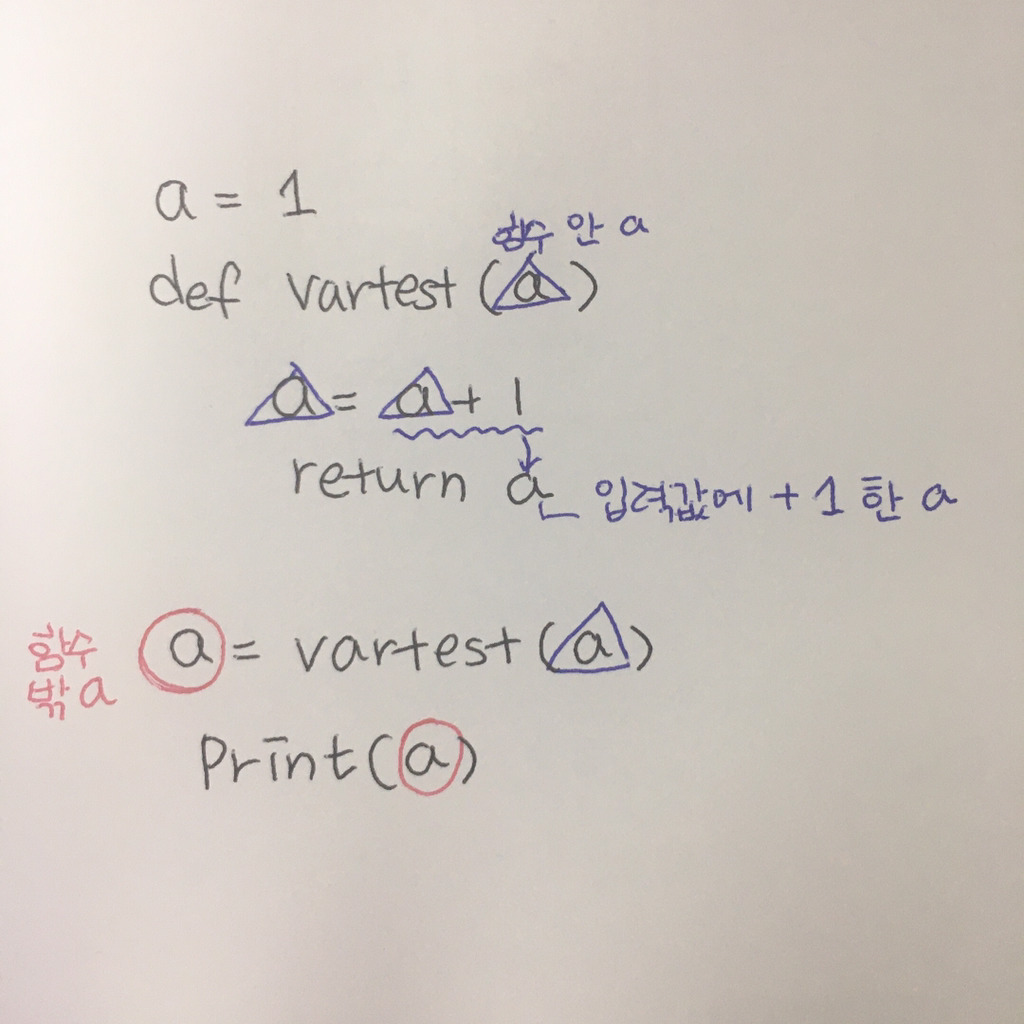 a = 1
함수 안 a
def vartest (a)
a = a + 1
return a 입력값에 + 1 한 a
함수 밖 a
a = vartest (a)
print (a)